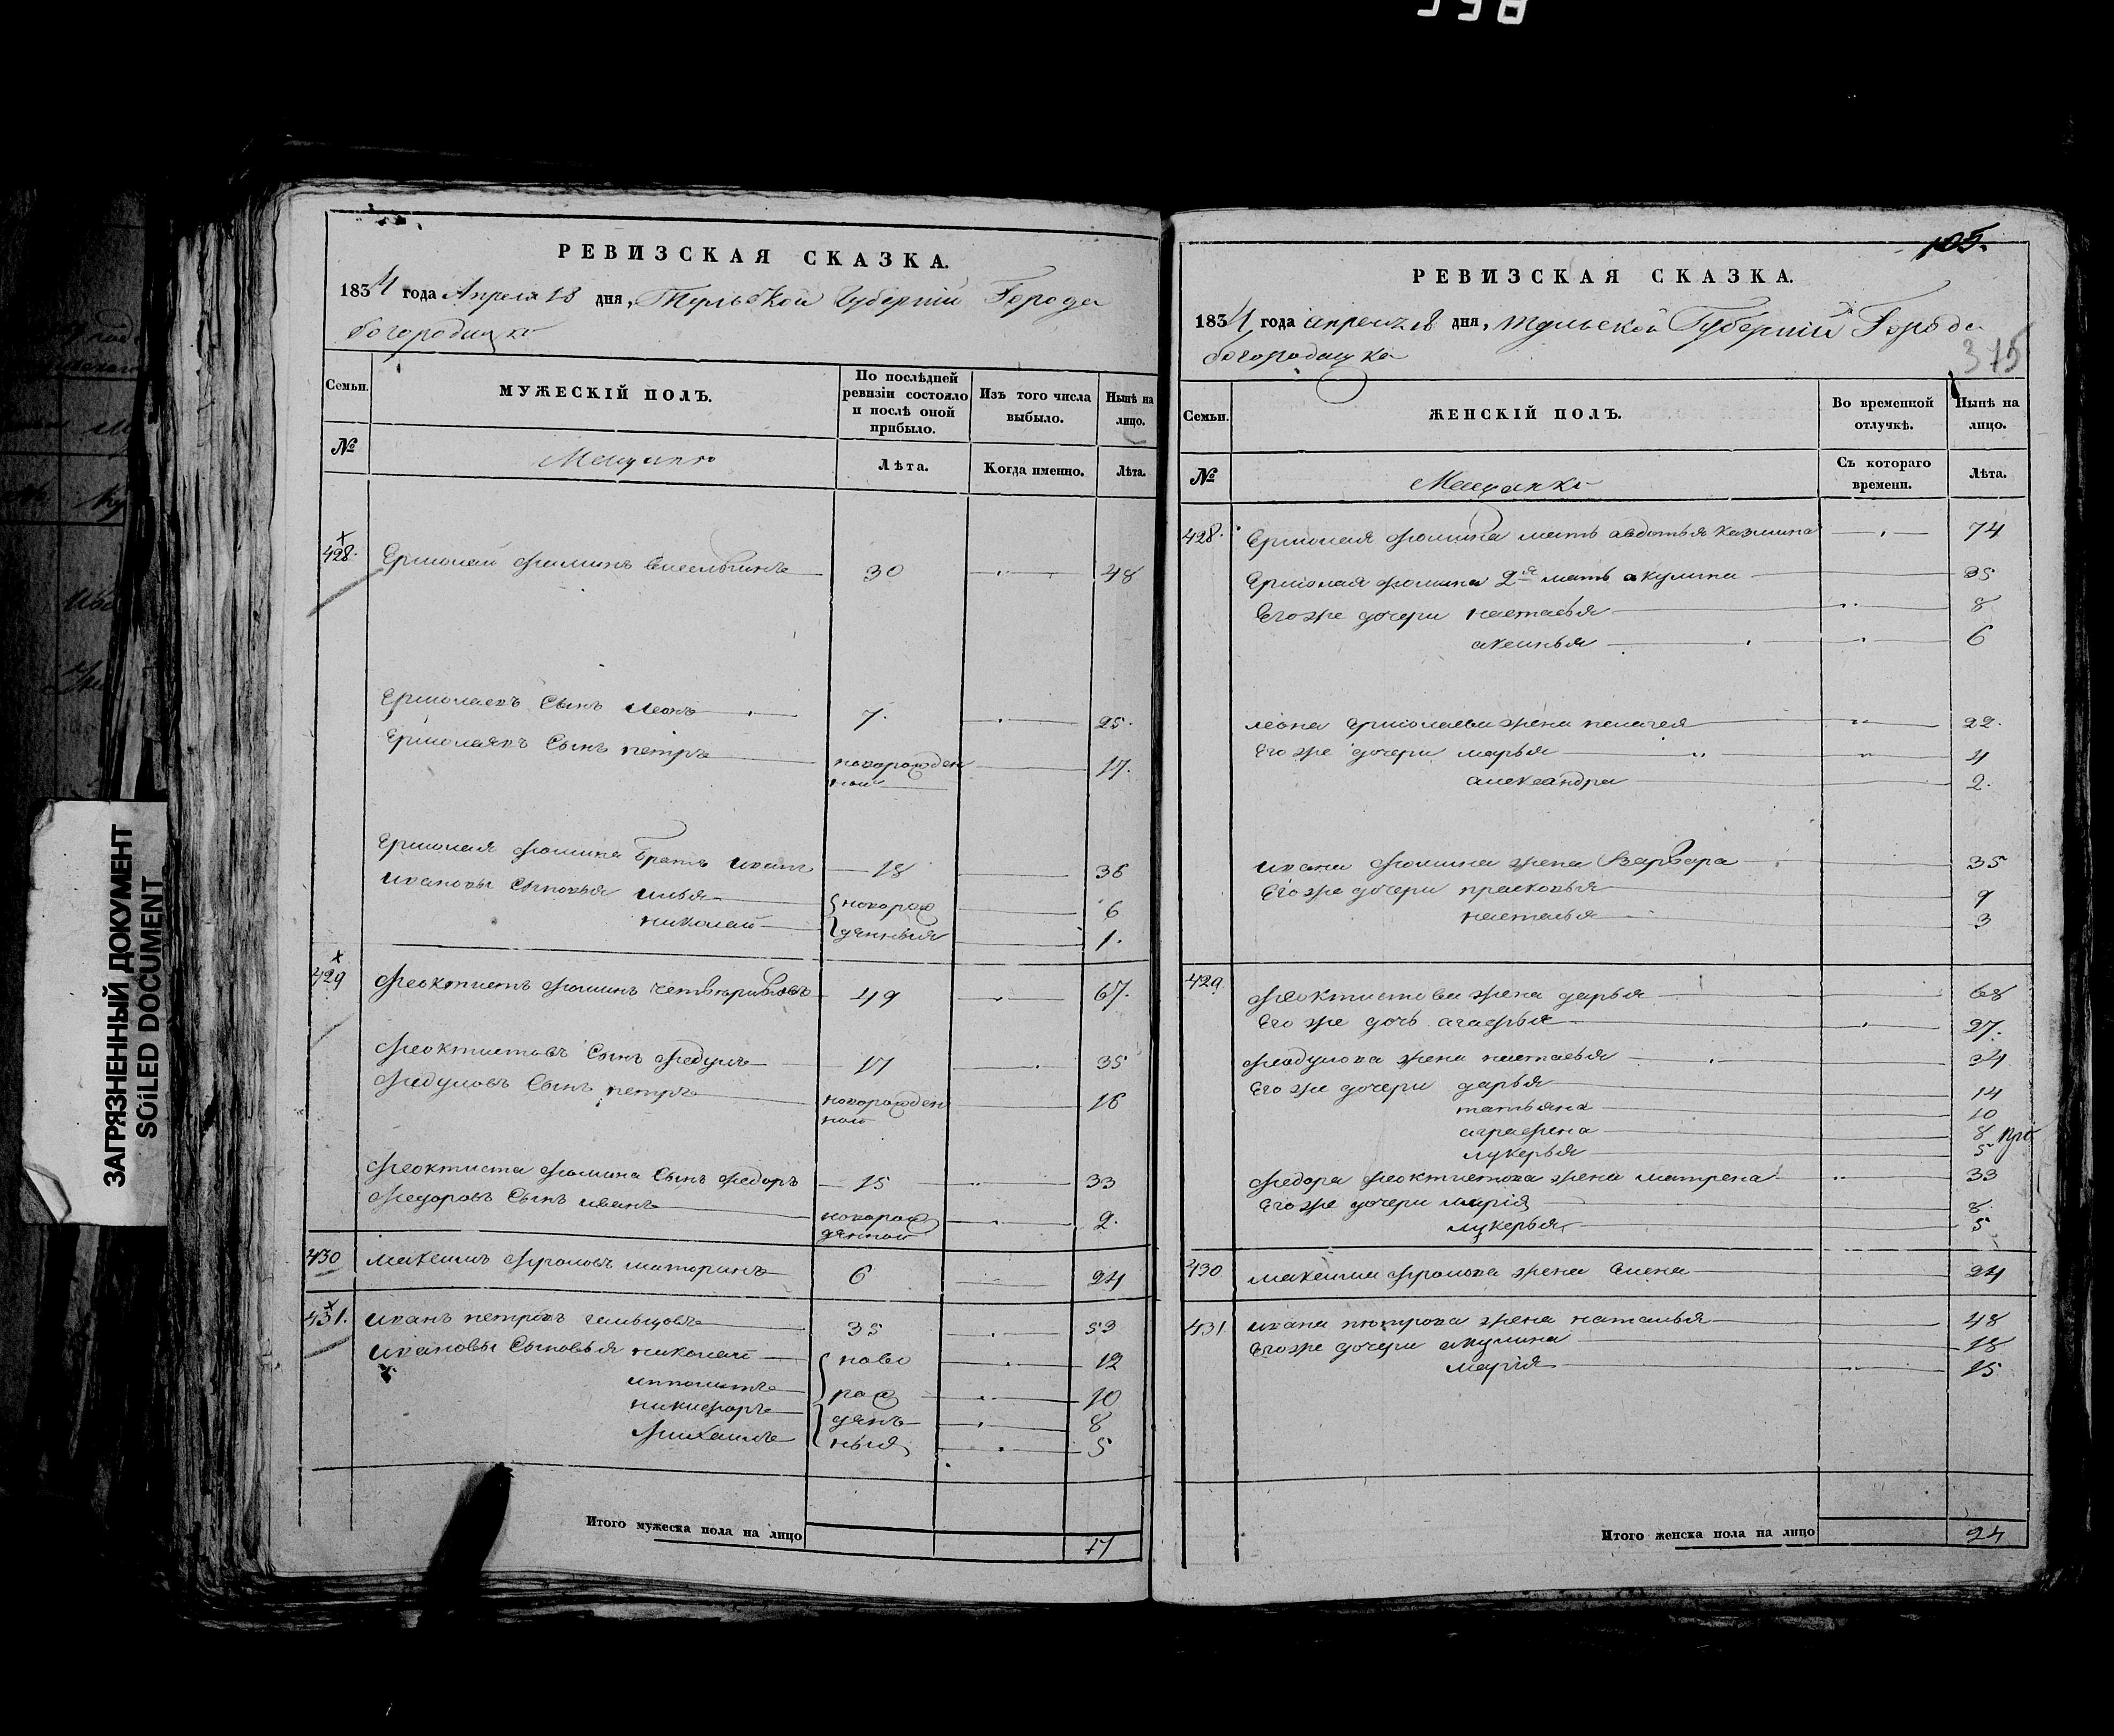 ЗАГРЯЗНЕННЫЙ ДОКУМЕНТ
SOILED DOCUMENT
РЕВИЗСКАЯ СКАЗКА.
1834 года Апреля 18 дня, Тульской Губерніи Города
богородицка
Семьи.
МУЖЕСКІЙ ПОЛЪ.
По послѣдней ревизіи состояло и послѣ оной прибыло.
Изъ того числа выбыло.
Нынѣ на лицо.
№
Лѣта.
Когда именно.
Лѣта.
428. Ермолай фоминъ 30 48
Ермолаевъ Сынъ Леонъ 7. 25.
Ермолаевъ Сынъ петръ новорожден 17.
ной
Ермолая фомина Братъ иванъ 18 36
ивановы Сыновья илья новорож 6
николай денныя 1.
429 феоктистъ фоминъ четвѣриковъ 49 67.
феоктистовъ Сынъ федулъ 17 35
федуловъ Сынъ петръ новорожден 16
ной
феоктиста фомина Сынъ федоръ 15 33
федоровъ Сынъ иванъ новорож 2.
денной
430 максимъ фроловъ 6 24
431. иванъ петровъ 35 53
ивановы Сыновья николай ново 12
ипполитъ рож 10
никифоръ денъ 8
михаилъ ныя 5
Итого мужеска пола на лицо 17
105.
РЕВИЗСКАЯ СКАЗКА.
1834 года апреля 18 дня, тульской Губерніи Города
богородицка
375
Семьи.
ЖЕНСКІЙ ПОЛЪ.
Во временной отлучкѣ.
Нынѣ на лицо.
№
Мещанки
Съ котораго времени.
Лѣта.
428. Ермолая фомина мать авдотья казмина 74
Ермолая фомина 2я мать акулина 35
Его же дочери настасья 8
аксинья 6
леона Ермолаева жена пелагея 22.
Его же дочери марья 4
александра 2.
ивана фомина жена Варвара 35
Его же дочери прасковья 9
наталья 3
429 феоктистова жена дарья 68
Его же дочь агафья 27.
федулова жена настасья 34
Его же дочери дарья 14
татьяна 10
аграфена 8
лукерья 5
федора феоктистова жена матрена 33
Его же дочери марія 8.
лукерья 5
430 максима фролова жена Елена 24
431 ивана петрова жена наталья 48
Его же дочери акулина 18
марія 15
Итого женска пола на лицо 24